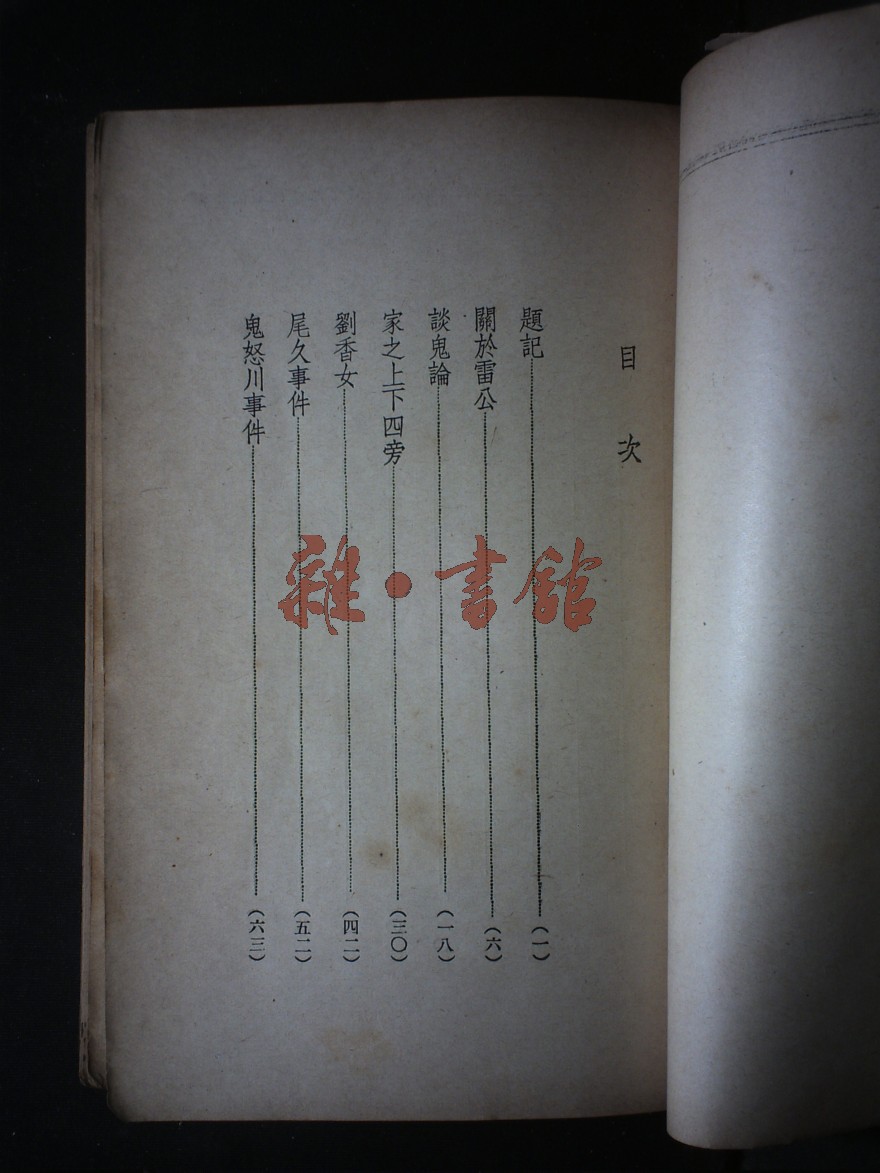 目次
題記(一)
關於雷公(六)
談鬼論(一八)
家之上下四旁(三〇)
劉香女(四二)
尾久事件(五二)
鬼怒川事件(六三)
雜·書館